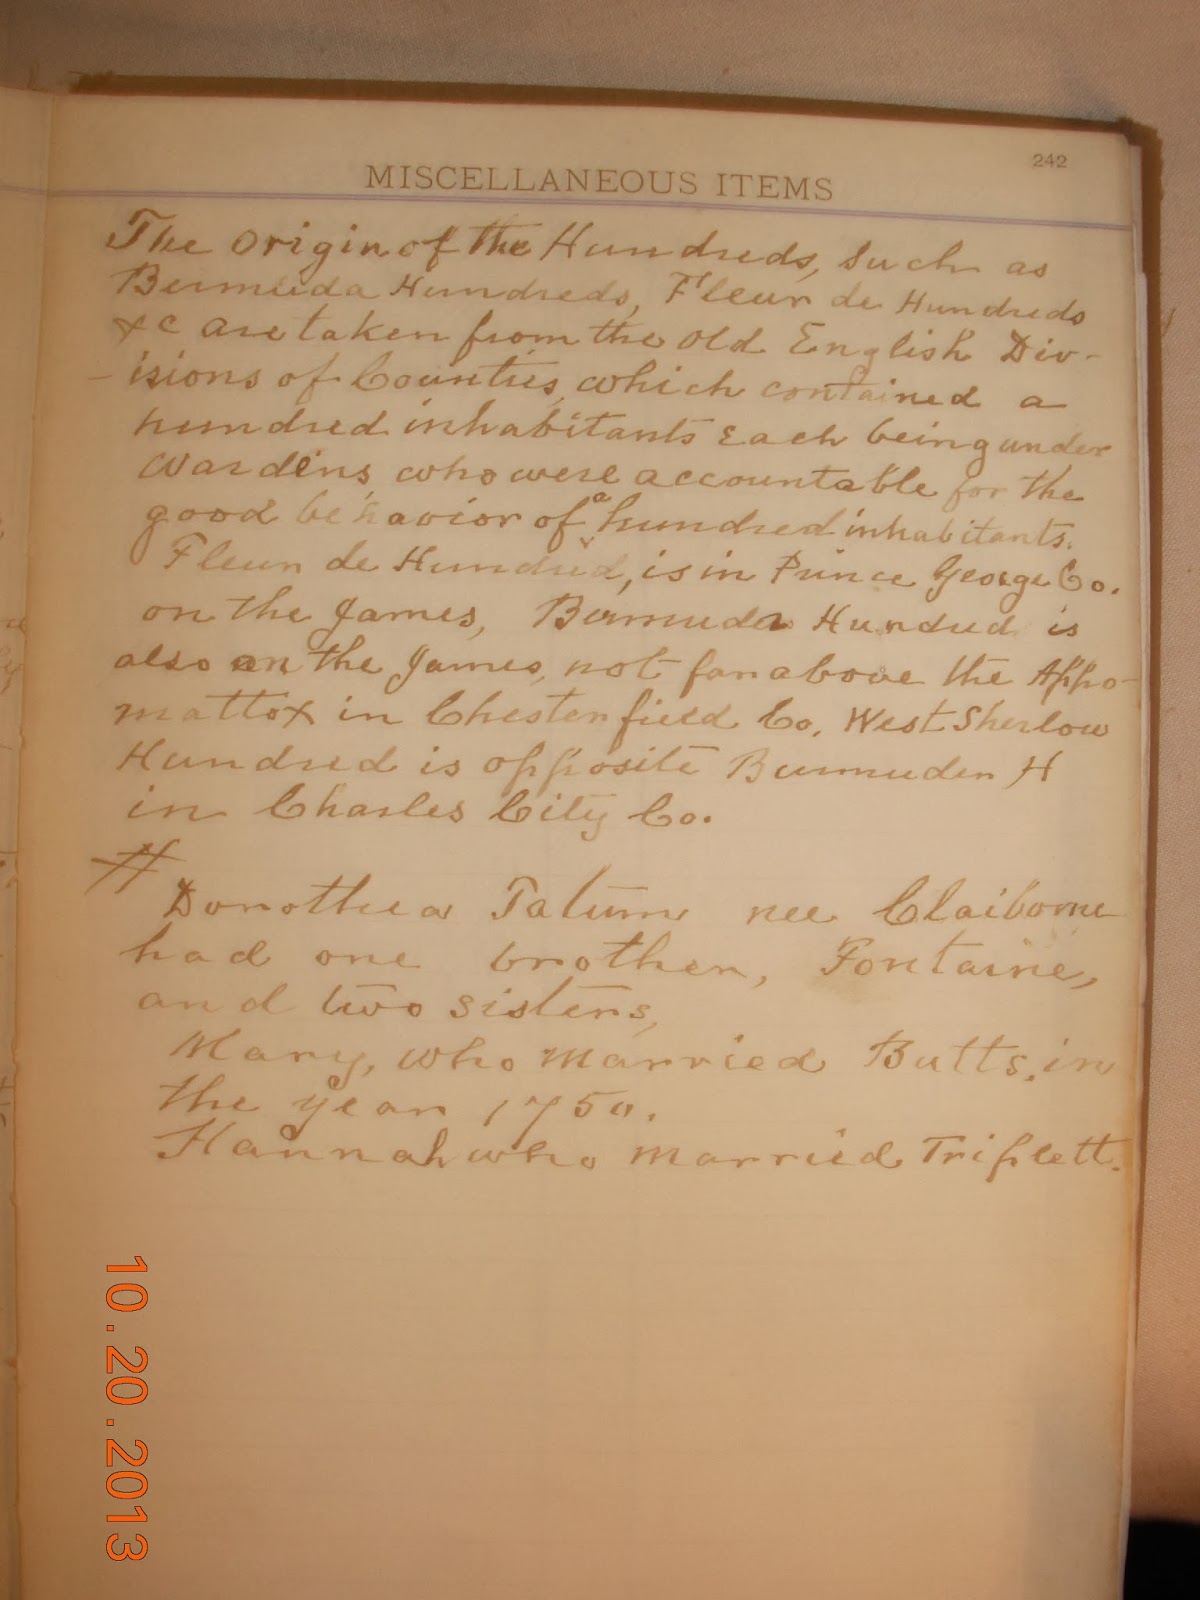 242
MISCELLANEOUS ITEMS
The Origin of the Hundreds, such as
Bermuda Hundreds, Fleur de Hundreds
&c are taken from the old English Div-
-isions of Counties, which contained a
hundred inhabitants Each being under
Wardens, who were accountable for the
good behavior of a hundred inhabitants.
Fleur de Hundred, is in Prince George Co.
on the James, Bermuda Hundred is
also on the James, not far above the Appo-
mattox in Chesterfield Co. West Sherlow
Hundred is opposite Burmuder H
in Charles City Co.
#
Dorothea Tatum nee Claiborne
had one brother, Fontaine,
and two sisters,
Mary, who married Butts. in
the year 1750.
Hannah who married Triplett.
10.20.2013